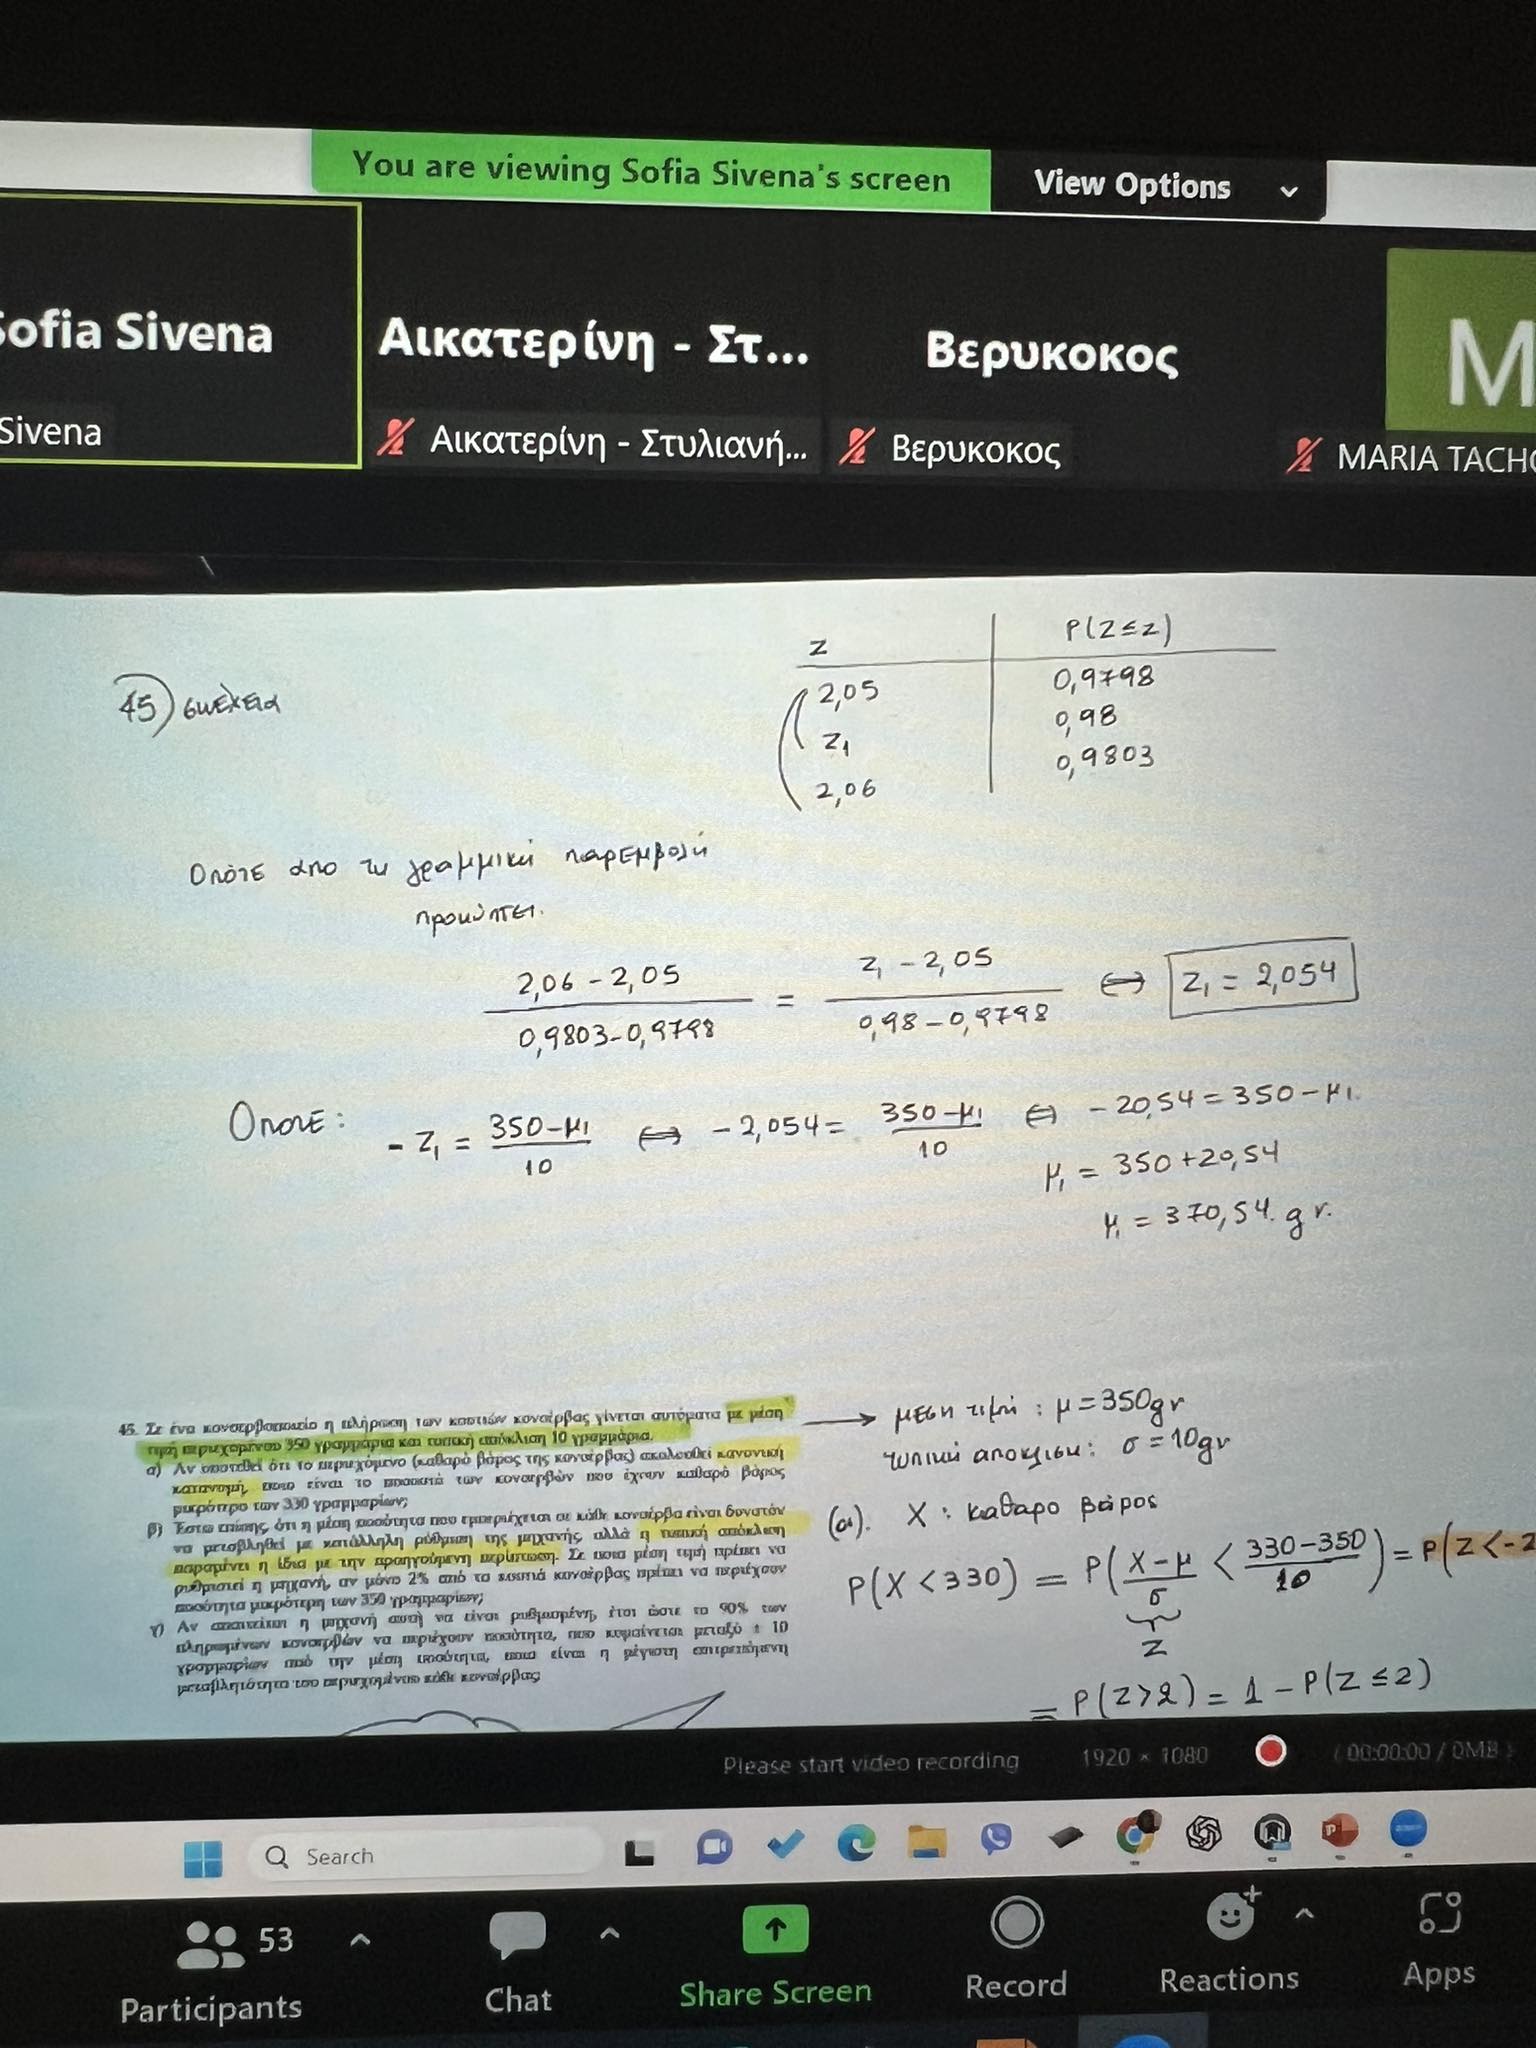 You are viewing Sofia Sivena's screen
View Options
Sofia Sivena
Αικατερίνη - Στ...
Βερυκοκος
M
Sivena
Αικατερίνη - Στυλιανή...
Βερυκοκος
MARIA TACHO
45) συνέχεια
z | P(Z≤z)
2,05 | 0,9798
z₁ | 0,98
2,06 | 0,9803
Οπότε απο τη γραμμική παρεμβολή
προκύπτει.
(2,06 - 2,05)/(0,9803-0,9798) = (z₁ - 2,05)/(0,98-0,9798) ⟺ z₁ = 2,054
Οποτε: -z₁ = (350-μ₁)/10 ⟺ -2,054 = (350-μ₁)/10 ⟺ -20,54 = 350-μ₁.
μ₁ = 350+20,54
μ₁ = 370,54. gr.
45. Σε ένα κονσερβοποιείο η πλήρωση των κουτιών κονσέρβας γίνεται αυτόματα με μέση
τιμή περιεχομένου 350 γραμμάρια και τυπική απόκλιση 10 γραμμάρια.
α) Αν υποτεθεί ότι το περιεχόμενο (καθαρό βάρος της κονσέρβας) ακολουθεί κανονική
κατανομή, ποιο είναι το ποσοστό των κονσερβών που έχουν καθαρό βάρος
μικρότερο των 330 γραμμαρίων;
β) Έστω επίσης, ότι η μέση ποσότητα που εμπεριέχεται σε κάθε κονσέρβα είναι δυνατόν
να μεταβληθεί με κατάλληλη ρύθμιση της μηχανής, αλλά η τυπική απόκλιση
παραμένει η ίδια με την προηγούμενη περίπτωση. Σε ποια μέση τιμή πρέπει να
ρυθμιστεί η μηχανή, αν μόνο 2% από τα κουτιά κονσέρβας πρέπει να περιέχουν
ποσότητα μικρότερη των 350 γραμμαρίων;
γ) Αν απαιτείται η μηχανή αυτή να είναι ρυθμισμένη, έτσι ώστε το 90% των
πληρωμένων κονσερβών να περιέχουν ποσότητα, που κυμαίνεται μεταξύ ± 10
γραμμαρίων από την μέση ποσότητα, ποια είναι η μέγιστη επιτρεπόμενη
μεταβλητότητα του περιεχομένου κάθε κονσέρβας;
→ μεση τιμή : μ=350gr
τυπική αποκλιση: σ=10gr
(α). X : καθαρο βάρος
P(X<330) = P((X-μ)/σ < (330-350)/10) = P(Z<-2
Z
= P(Z>2) = 1 - P(Z≤2)
Please start video recording
1920 × 1080
(00:00:00 / 0MB)
Search
53
Participants
Chat
Share Screen
Record
Reactions
Apps